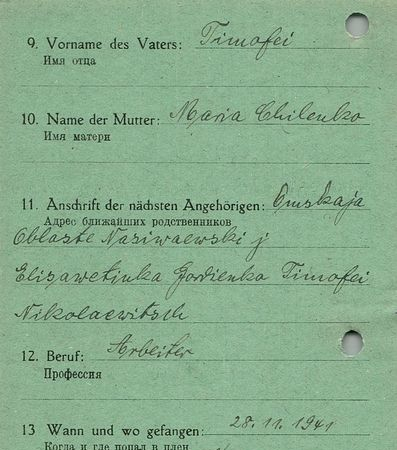 9. Vorname des Vaters: Timofei
Имя отца
10. Name der Mutter: Maria Chilenko
Имя матери
11. Anschrift der nächsten Angehörigen: Omskaja
Адрес ближайших родственников
Oblaste Nasiwaewski j
Elisawetinka Gordienko Timofei
Nikolaewitsch
12. Beruf: Arbeiter
Профессия
13 Wann und wo gefangen: 28. 11. 1941
Когда и где попал в плен